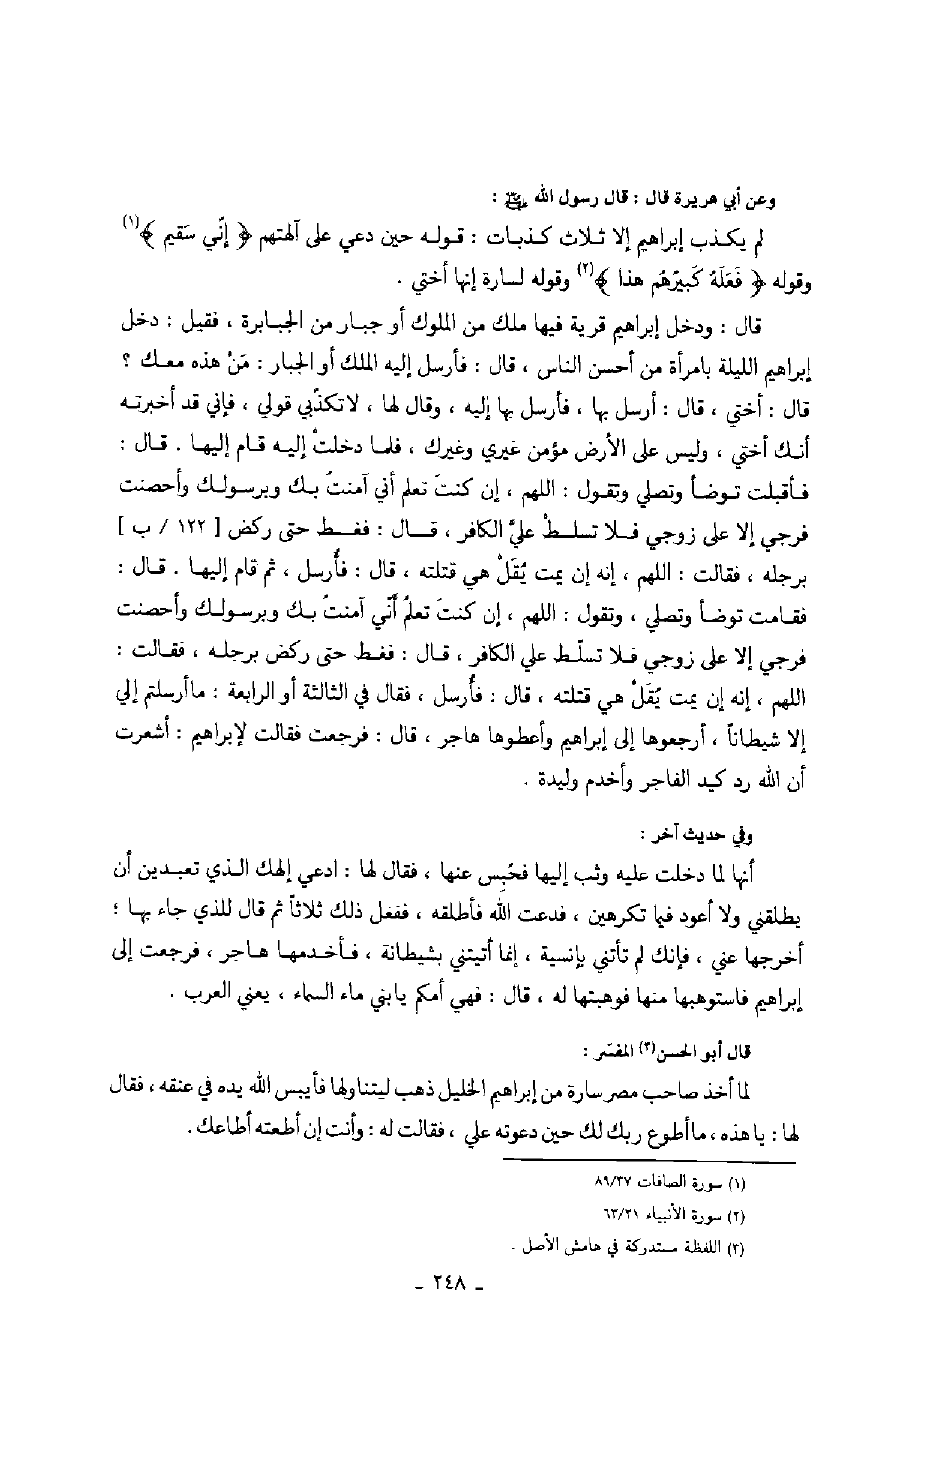 وعن أبي هريرة قال : قال رسول الله ﷺ :
لم يكذب إبراهيم إلا ثلاث كذبات : قوله حين دعي على آلهتهم ﴿ إنّي سَقيم ﴾(١)
وقوله ﴿ فَعَلَهُ كَبيرُهُم هذا ﴾(٢) وقوله لسارة إنها أختي .
قال : ودخل إبراهيم قرية فيها ملك من الملوك أو جبار من الجبابرة ، فقيل : دخل
إبراهيم الليلة بامرأة من أحسن الناس ، قال : فأرسل إليه الملك أو الجبار : مَنْ هذه معك ؟
قال : أختي ، قال : أرسل بها ، فأرسل بها إليه ، وقال لها ، لاتكذّبي قولي ، فإني قد أخبرته
أنك أختي ، وليس على الأرض مؤمن غيري وغيرك ، فلما دخلتْ إليه قام إليها . قال :
فأقبلت توضأ وتصلي وتقول : اللهم ، إن كنتَ تعلم أني آمنتُ بك وبرسولك وأحصنت
فرجي إلا على زوجي فلا تسلطْ عليّ الكافر ، قال : فغط حتى ركض [ ١٢٢ / ب ]
برجله ، فقالت : اللهم ، إنه إن يمت يُقَلْ هي قتلته ، قال : فأُرسل ، ثم قام إليها . قال :
فقامت توضأ وتصلي ، وتقول : اللهم ، إن كنتَ تعلمُ أنّي آمنتُ بك وبرسولك وأحصنت
فرجي إلا على زوجي فلا تسلّط علي الكافر ، قال : فغط حتى ركض برجله ، فقالت :
اللهم ، إنه إن يمت يُقَلْ هي قتلته ، قال : فأُرسل ، فقال في الثالثة أو الرابعة : ماأرسلتم إلي
إلا شيطاناً ، أرجعوها إلى إبراهيم وأعطوها هاجر ، قال : فرجعت فقالت لإبراهيم : أشعرت
أن الله رد كيد الفاجر وأخدم وليدة .
وفي حديث آخر :
أنها لما دخلت عليه وثب إليها فحُبِس عنها ، فقال لها : ادعي إلهك الذي تعبدين أن
يطلقني ولا أعود فيما تكرهين ، فدعت الله فأطلقه ، ففعل ذلك ثلاثاً ثم قال للذي جاء بها ؛
أخرجها عني ، فإنك لم تأتني بإنسية ، إنما أتيتني بشيطانة ، فأخدمها هاجر ، فرجعت إلى
إبراهيم فاستوهبها منها فوهبتها له ، قال : فهي أمكم يابني ماء السماء ، يعني العرب .
قال أبو الحسن(٣) المفسّر :
لما أخذ صاحب مصر سارة من إبراهيم الخليل ذهب ليتناولها فأيبس الله يده في عنقه ، فقال
لها : ياهذه ، ماأطوع ربك لك حين دعوته علي ، فقالت له : وأنت إن أطعته أطاعك .
(١) سورة الصافات ٨٩/٣٧
(٢) سورة الأنبياء ٦٣/٢١
(٣) اللفظة مستدركة في هامش الأصل .
ـ ٢٤٨ ـ